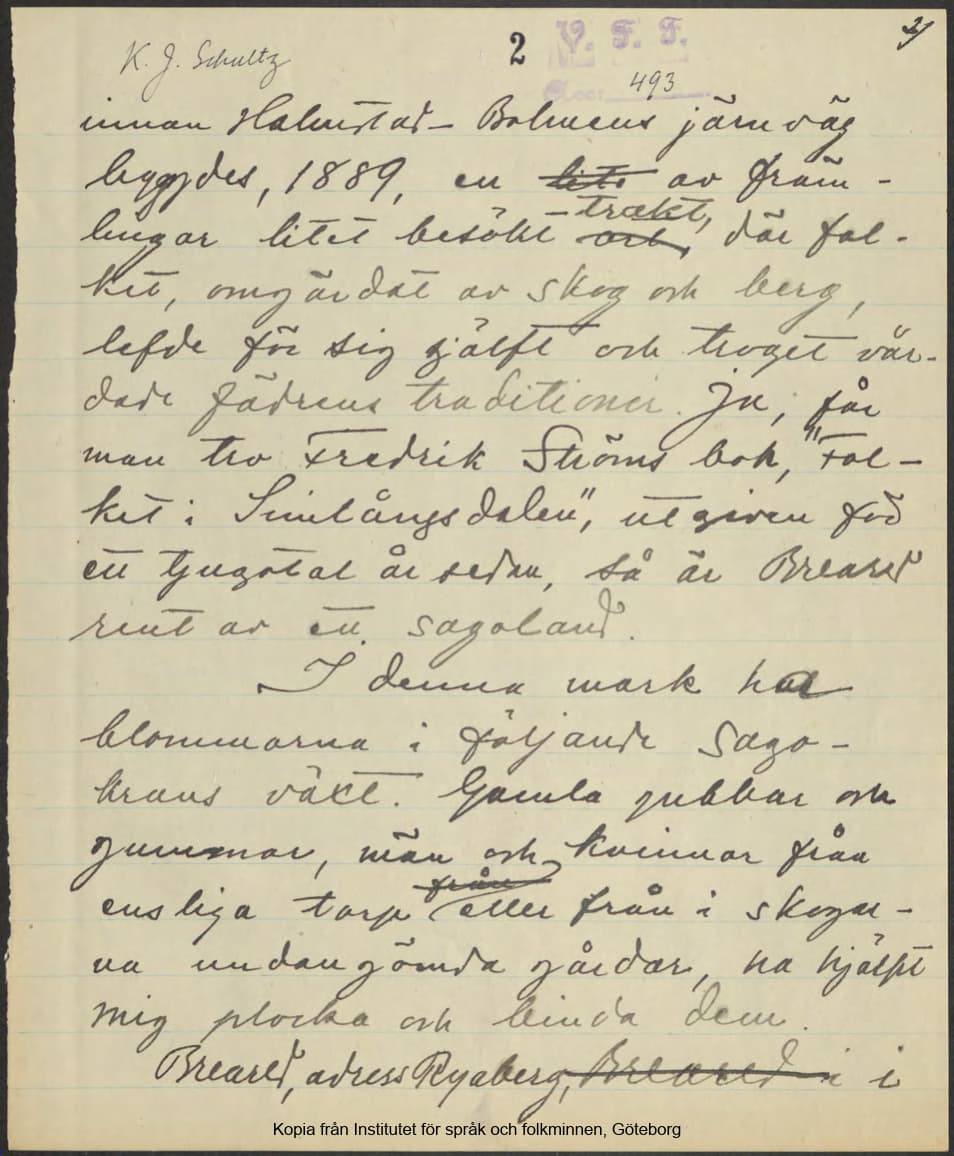 K. J. Schultz
2
V. F. F.
493
innan Halmstad-Bolmens järnväg
byggdes, 1889, en av främ-
lingar litet besökt trakt, där fol-
ket, omgärdat av skog och berg,
lefde för sig själft och troget vår-
dade fädrens traditioner. Ja, får
man tro Fredrik Ströms bok, "Fol-
ket i Simlångsdalen", utgiven för
ett tjugotal år sedan, så är Breared
rent av ett sagoland.
I denna mark har
blommorna i följande sago-
krans växt. Gamla gubbar och
gummor, män och kvinnor från
från
ensliga torp eller från i skogar-
na undangömda gårdar, ha hjälpt
mig plocka och binda dem.
Breared, adress Ryaberg, Breared i i
Kopia från Institutet för språk och folkminnen, Göteborg